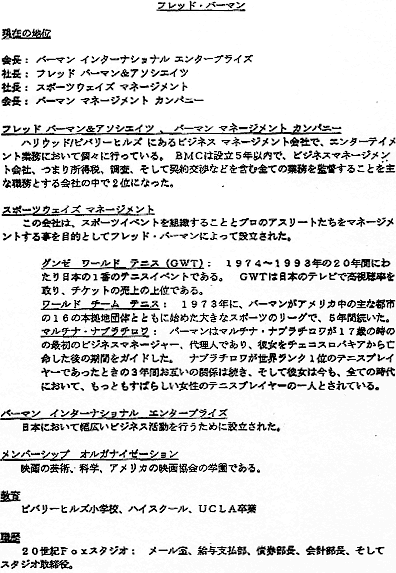 フレッド・バーマン
現在の地位
会長： バーマン インターナショナル エンタープライズ
社長： フレッド バーマン＆アソシエイツ
社長： スポーツウェイズ マネージメント
会長： バーマン マネージメント カンパニー
フレッド バーマン＆アソシエイツ 、 バーマン マネージメント カンパニー
ハリウッド/ビバリーヒルズ にあるビジネス マネージメント会社で、エンターテイメ
ント業務において個々に行っている。 ＢＭＣは設立５年以内で、ビジネスマネージメン
ト会社、つまり所得税、調査、そして契約交渉などを含む全ての業務を監督することを主
な職務とする会社の中で２位になった。
スポーツウェイズ マネージメント
この会社は、スポーツイベントを組織することとプロのアスリートたちをマネージメ
ントする事を目的としてフレッド・バーマンによって設立された。
グンゼ ワールド テニス（GWT）： １９７４～１９９３年の２０年間にわ
たり日本の１番のテニスイベントである。 GWTは日本のテレビで高視聴率を
取り、チケットの売上の上位である。
ワールド チーム テニス： １９７３年に、バーマンがアメリカ中の主な都市
の１６の本拠地団体とともに始めた大きなスポーツのリーグで、５年間続いた。
マルチナ・ナブラチロワ： バーマンはマルチナ・ナブラチロワが１７歳の時の
の最初のビジネスマネージャー、代理人であり、彼女をチェコスロバキアから亡
命した後の期間をガイドした。 ナブラチロワが世界ランク１位のテニスプレイ
ヤーであったときの３年間お互いの関係は続き、そして彼女は今も、全ての時代
において、もっともすばらしい女性のテニスプレイヤーの一人とされている。
バーマン インターナショナル エンタープライズ
日本において幅広いビジネス活動を行うために設立された。
メンバーシップ オルガナイゼーション
映画の芸術、科学、アメリカの映画協会の学園である。
教育
ビバリーヒルズ小学校、ハイスクール、ＵＣＬＡ卒業
職歴
２０世紀Ｆｏｘスタジオ： メール室、給与支払部、債券部長、会計部長、そして
スタジオ取締役。